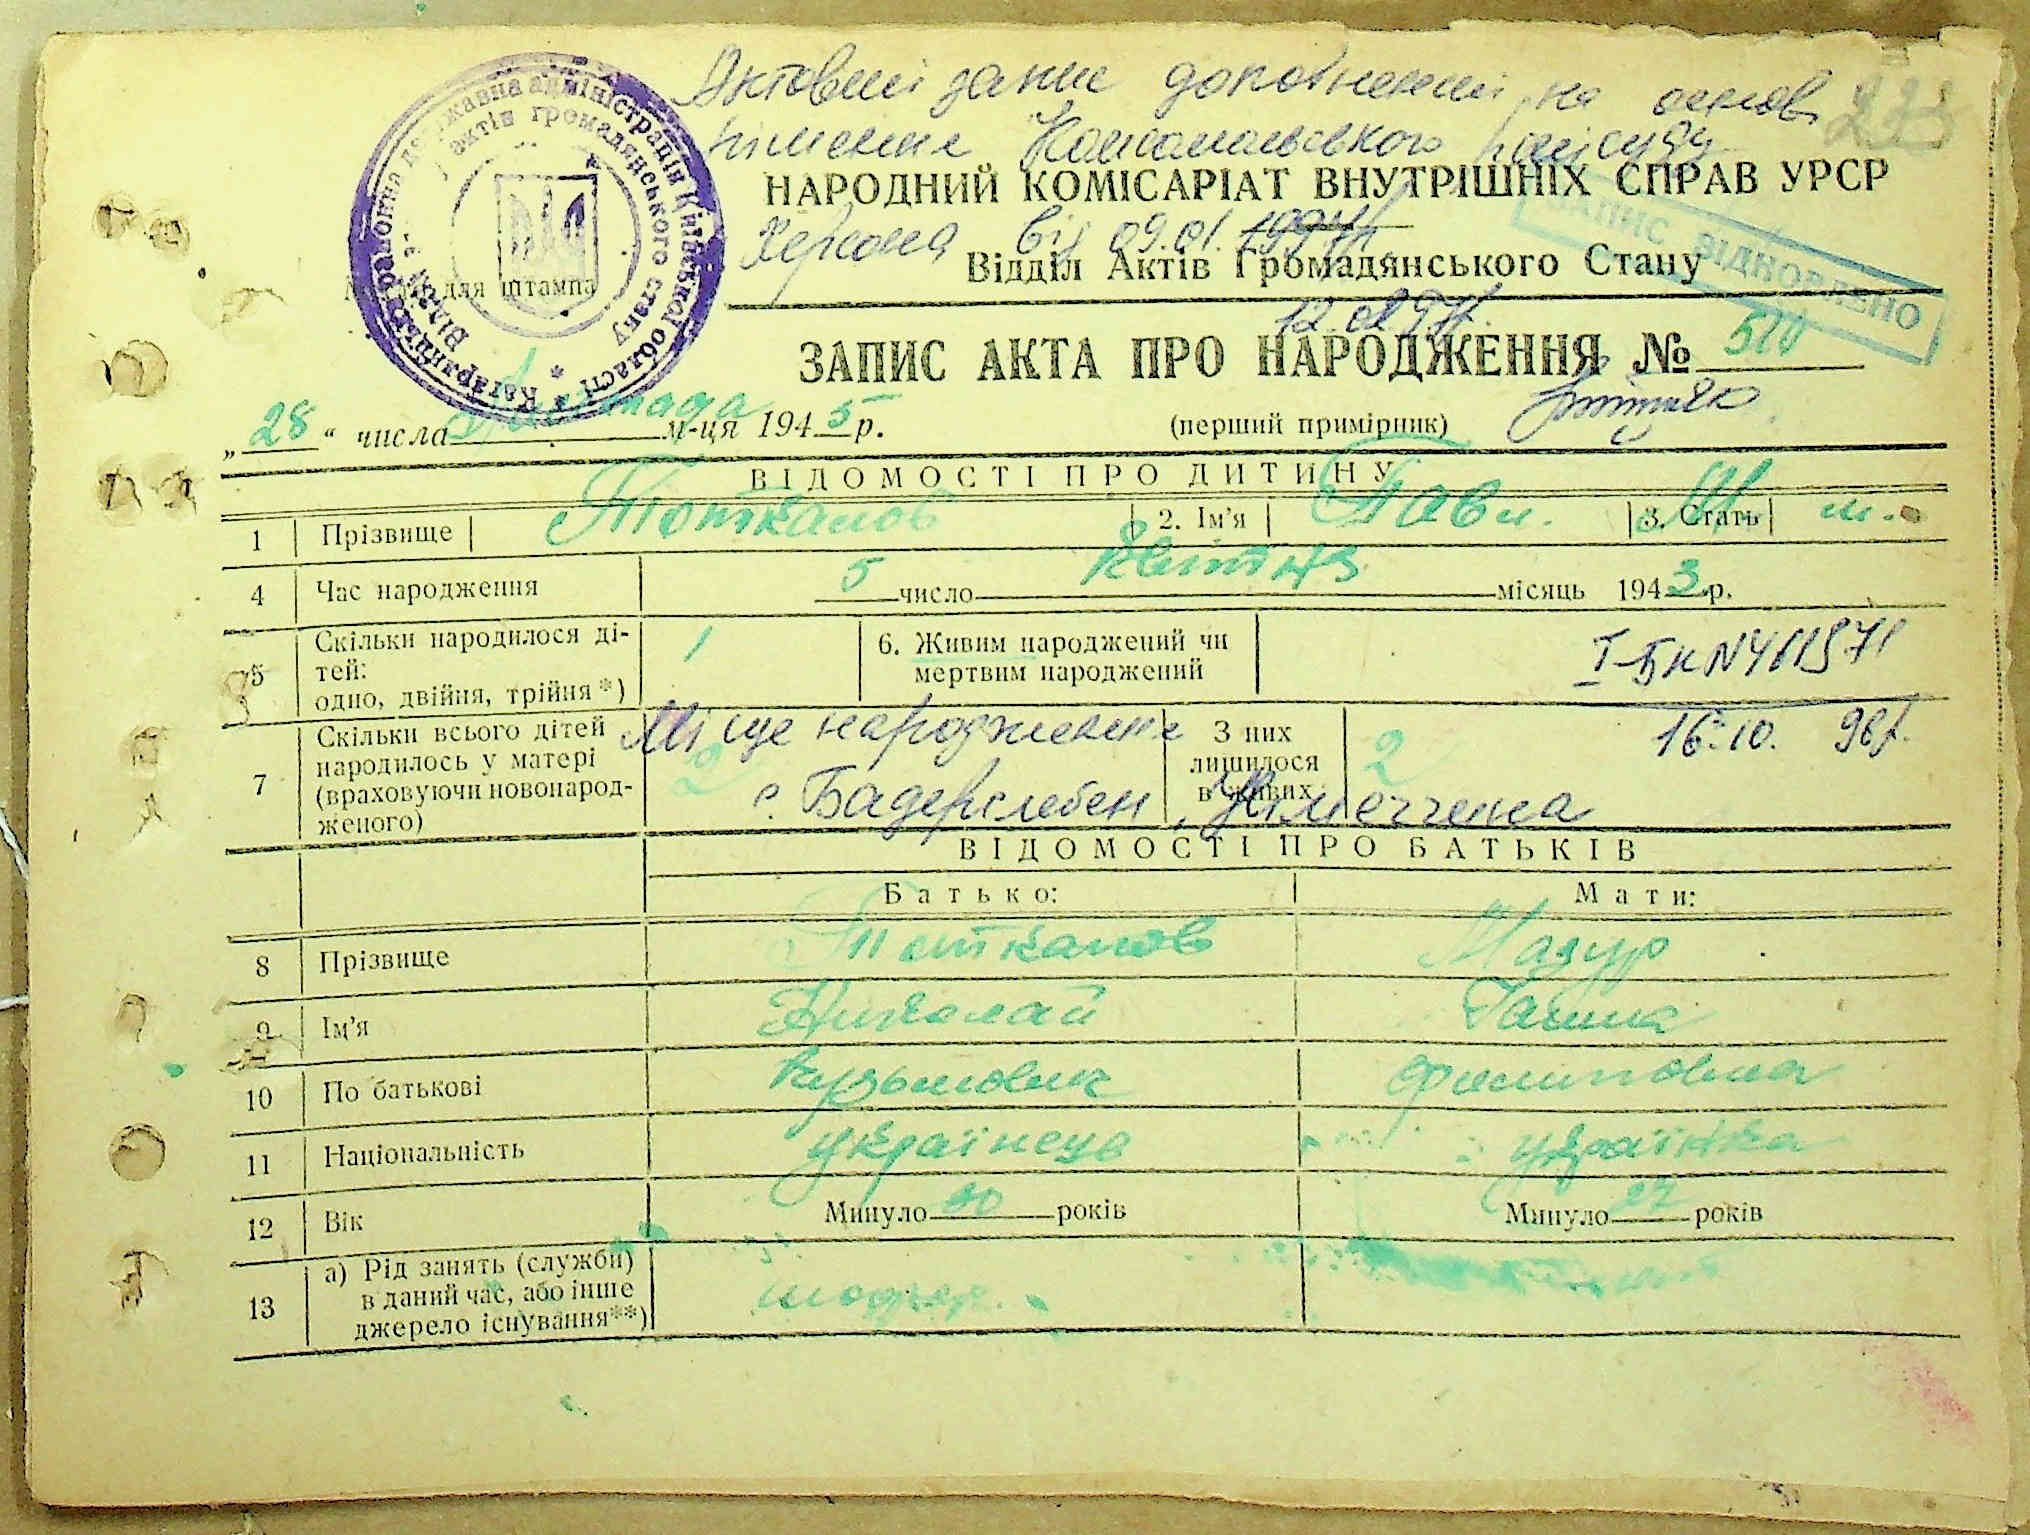 Актовий запис доповнений на основі 233
рішення Комсомольського райсуду
НАРОДНИЙ КОМІСАРІАТ ВНУТРІШНІХ СПРАВ УРСР
Херсона від 09.01.1997р.
Відділ Актів Громадянського Стану
ЗАПИС ВІДНОВЛЕНО
Місце для штампа
12.02.97р.
ЗАПИС АКТА ПРО НАРОДЖЕННЯ № 510
„28“ числа Листопада м-ця 1945 р. (перший примірник)
ВІДОМОСТІ ПРО ДИТИНУ
1 Прізвище 2. Ім'я Павл. 3. Стать М.
4 Час народження 5 число Квітня місяць 1943 р.
5 Скільки народилося ді-
тей:
одно, двійня, трійня*) 1 6. Живим народжений чи
мертвим народжений
І-БК №411571
16.10. 96р.
7 Скільки всього дітей
народилось у матері
(враховуючи новонарод-
женого) 2 З них
лишилося
в живих 2
Місце народження
с. Бадерслебен, Німеччина
ВІДОМОСТІ ПРО БАТЬКІВ
Батько: Мати:
8 Прізвище Мазур
9 Ім'я Николай Галина
10 По батькові Кузьмович Филиповна
11 Національність українець українка
12 Вік Минуло 30 років Минуло 27 років
13 а) Рід занять (служби)
в даний час, або інше
джерело існування**) шофер.